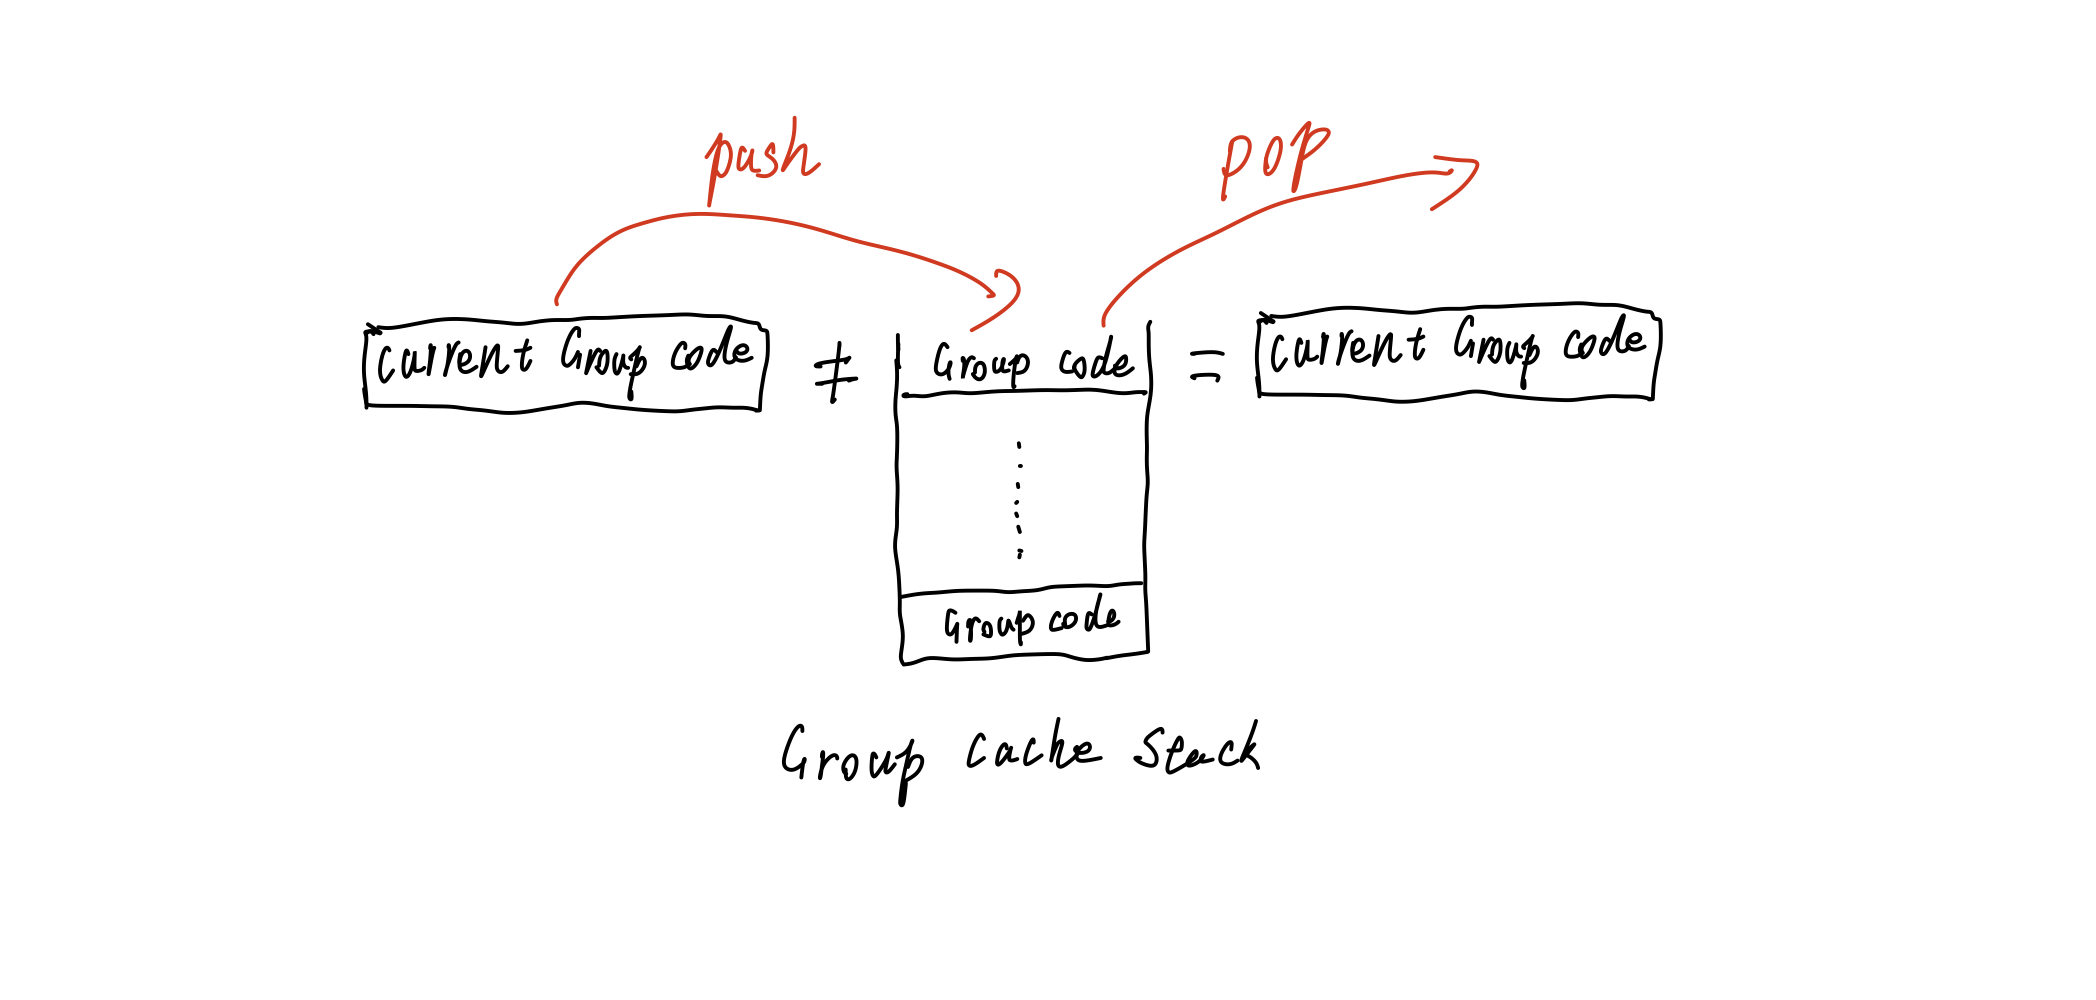 push
pop
current Group code ≠ Group code = current Group code
Group code
Group cache stack